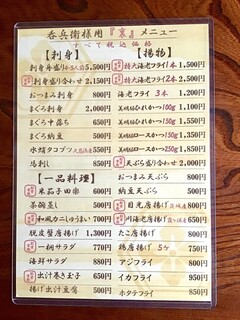 呑兵衛様用『裏』メニュー
すべて税込価格
【刺身】
刺身舟盛り 5,500円
刺身盛り合わせ 2,150円
おつまみ刺身 800円
まぐろ刺身 2,000円
まぐろ中落ち 650円
まぐろ納豆 650円
水蛸タコブツ 750円
馬刺し 850円
【一品料理】
米茄子田楽 600円
茶碗蒸し 500円
和風カニしゅうまい 700円
脱皮蟹唐揚げ 1,300円
一桐サラダ 770円
海鮮サラダ 880円
出汁巻き玉子 650円
揚げ出し豆腐 500円
【揚物】
特大海老フライ1本 1,500円
特大海老フライ2本 2,500円
海老フライ 3本 1,200円
ひれかつ150g 1,100円
ひれかつ100g 850円
ロースかつ250g 1,350円
ロースかつ150g 950円
天ぷら盛り合わせ 2,000円
おつまみ天ぷら 800円
納豆天ぷら 500円
目光唐揚げ 800円
川海老唐揚げ 650円
たこ唐揚げ 800円
鶏唐揚げ 5ヶ 750円
アジフライ 800円
イカフライ 950円
ホタテフライ 850円